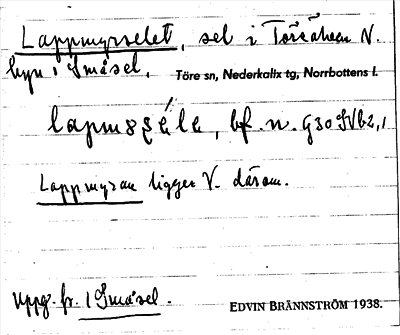 Lappmyrselet, sel i Töreälven N.
byn i Småsel. Töre sn, Nederkalix tg, Norrbottens l.
bf. n. G30SVb2,1
Lappmyran ligger V. därom.
Uppg. fr. i Småsel.
EDVIN BRÄNNSTRÖM 1938.